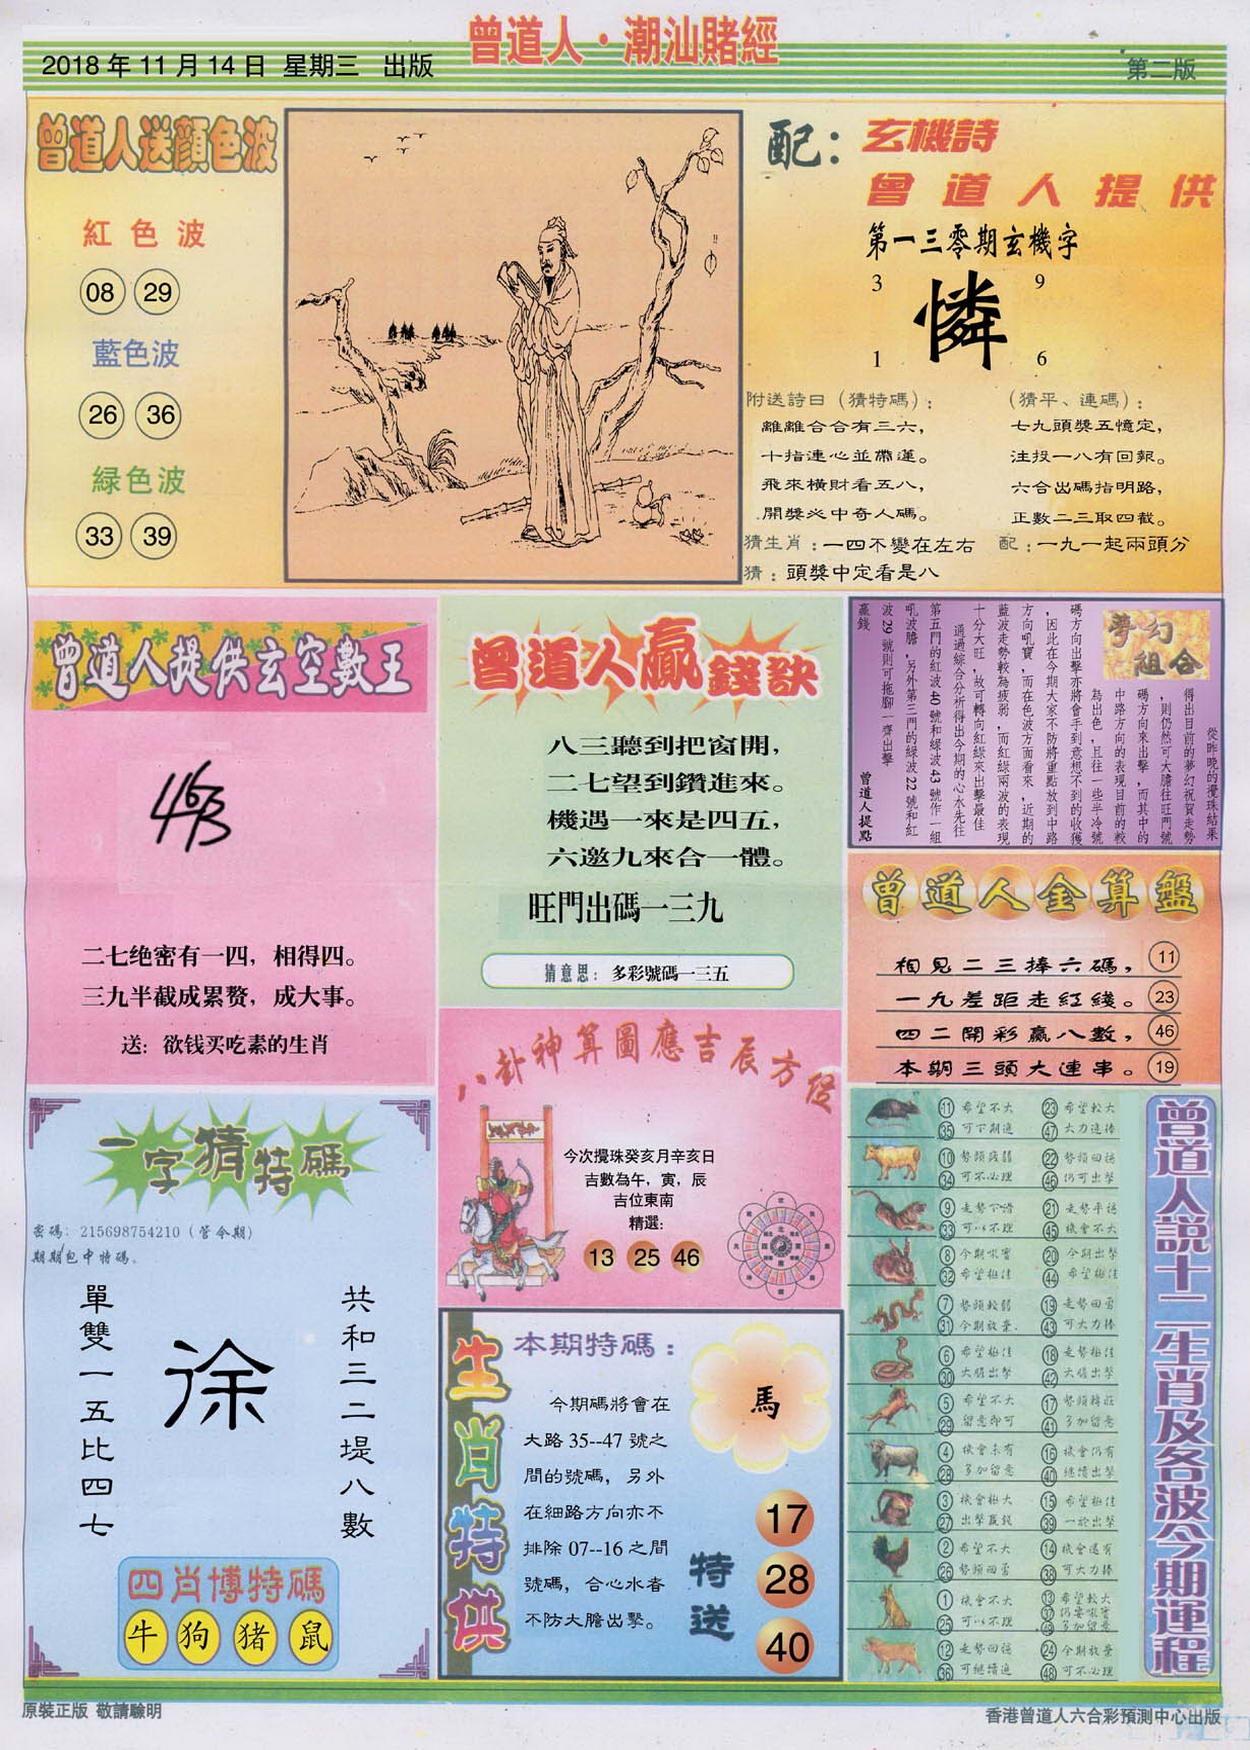 曾道人·潮汕賭經
2018年11月14日 星期三 出版
第二版
曾道人送顔色波
紅色波
08 29
藍色波
26 36
緑色波
33 39
配：玄機詩
曾道人提供
第一三零期玄機字
3 9
憐
1 6
附送詩曰（猜特碼）：
離離合合有三六，
十指連心並帶蓮。
飛來橫財看五八，
開獎必中奇人碼。
（猜平、連碼）：
七九頭獎五憶定，
注投一八有回報。
六合出碼指明路，
正數二三取四截。
猜生肖：一四不變在左右
配：一九一起兩頭分
猜：頭獎中定看是八
曾道人提供玄空數王
463
二七绝密有一四，相得四。
三九半截成累赘，成大事。
送：欲钱买吃素的生肖
曾道人贏錢訣
八三聽到把窗開，
二七望到鑽進來。
機遇一來是四五，
六邀九來合一體。
旺門出碼一三九
猜意思：多彩號碼一三五
夢幻組合
從昨晚的攪珠結果
得出目前的夢幻祝賀走勢
，則仍然可大膽往旺門號
碼方向來出擊，而其中的
中路方向的表現目前的較
為出色，且往一些半冷號
碼方向出擊亦將會手到意想不到的收獲
，因此在今期大家不防將重點放到中路
方向吼寶，而在色波方面看來，近期的
藍波走勢較為疲弱，而紅緑兩波的表現
十分大旺，故可轉向紅緑來出擊最佳
通過綜合分析得出今期的心水先往
第五門的紅波40號和緑波43號作一組
吼波膽，另外第三門的緑波22號和紅
波29號則可拖腳一齊出擊
贏錢 曾道人提點
曾道人金算盤
相見二三捧六碼， 11
一九差距走紅綫。 23
四二開彩贏八數， 46
本期三頭大連串。 19
八卦神算圖應吉辰方位
今次攪珠癸亥月辛亥日
吉數為午，寅，辰
吉位東南
精選：
13 25 46
一字猜特碼
密碼：215698754210（管令期）
期期包中特碼。
單雙一五比四七
徐
共和三二堤八數
四肖博特碼
牛 狗 猪 鼠
生肖特供
本期特碼：
今期碼將會在
大路35--47號之
間的號碼，另外
在細路方向亦不
排除07--16之間
號碼，合心水者
不防大膽出擊。
馬
特送
17
28
40
曾道人説十二生肖及各波今期運程
11 希望不大 23 希望較大
35 可下期追 47 大力追捧
10 勢頭疲弱 22 勢頭回穩
34 可不必理 46 仍可出擊
9 21 走勢平穩
33 可以不理 45 機會不大
8 今期吼寶 20 今期出擊
32 希望極佳 44 希望極佳
7 勢頭較弱 19 走勢回勇
31 今期放棄. 43 可大力捧
6 希望極佳 18 走勢極佳
30 大膽出擊 42 大膽出擊
5 希望不大 17
29 留意即可 41 多加留意
4 機會未有 16 機會仍有
28 多加留意 40 繼續出擊
3 機會極大 15 希望極佳
27 出擊贏錢 39 一於出擊
2 希望不大 14 機會還有
26 勢頭回勇 38 可大力捧
1 機會不大 13 希望較大
25 可以不理 37 仍要吼寶
49 多加留意
12 走勢回穩 24 今期放棄
36 可繼續追 48 可不必理
原裝正版 敬請驗明
香港曾道人六合彩預測中心出版